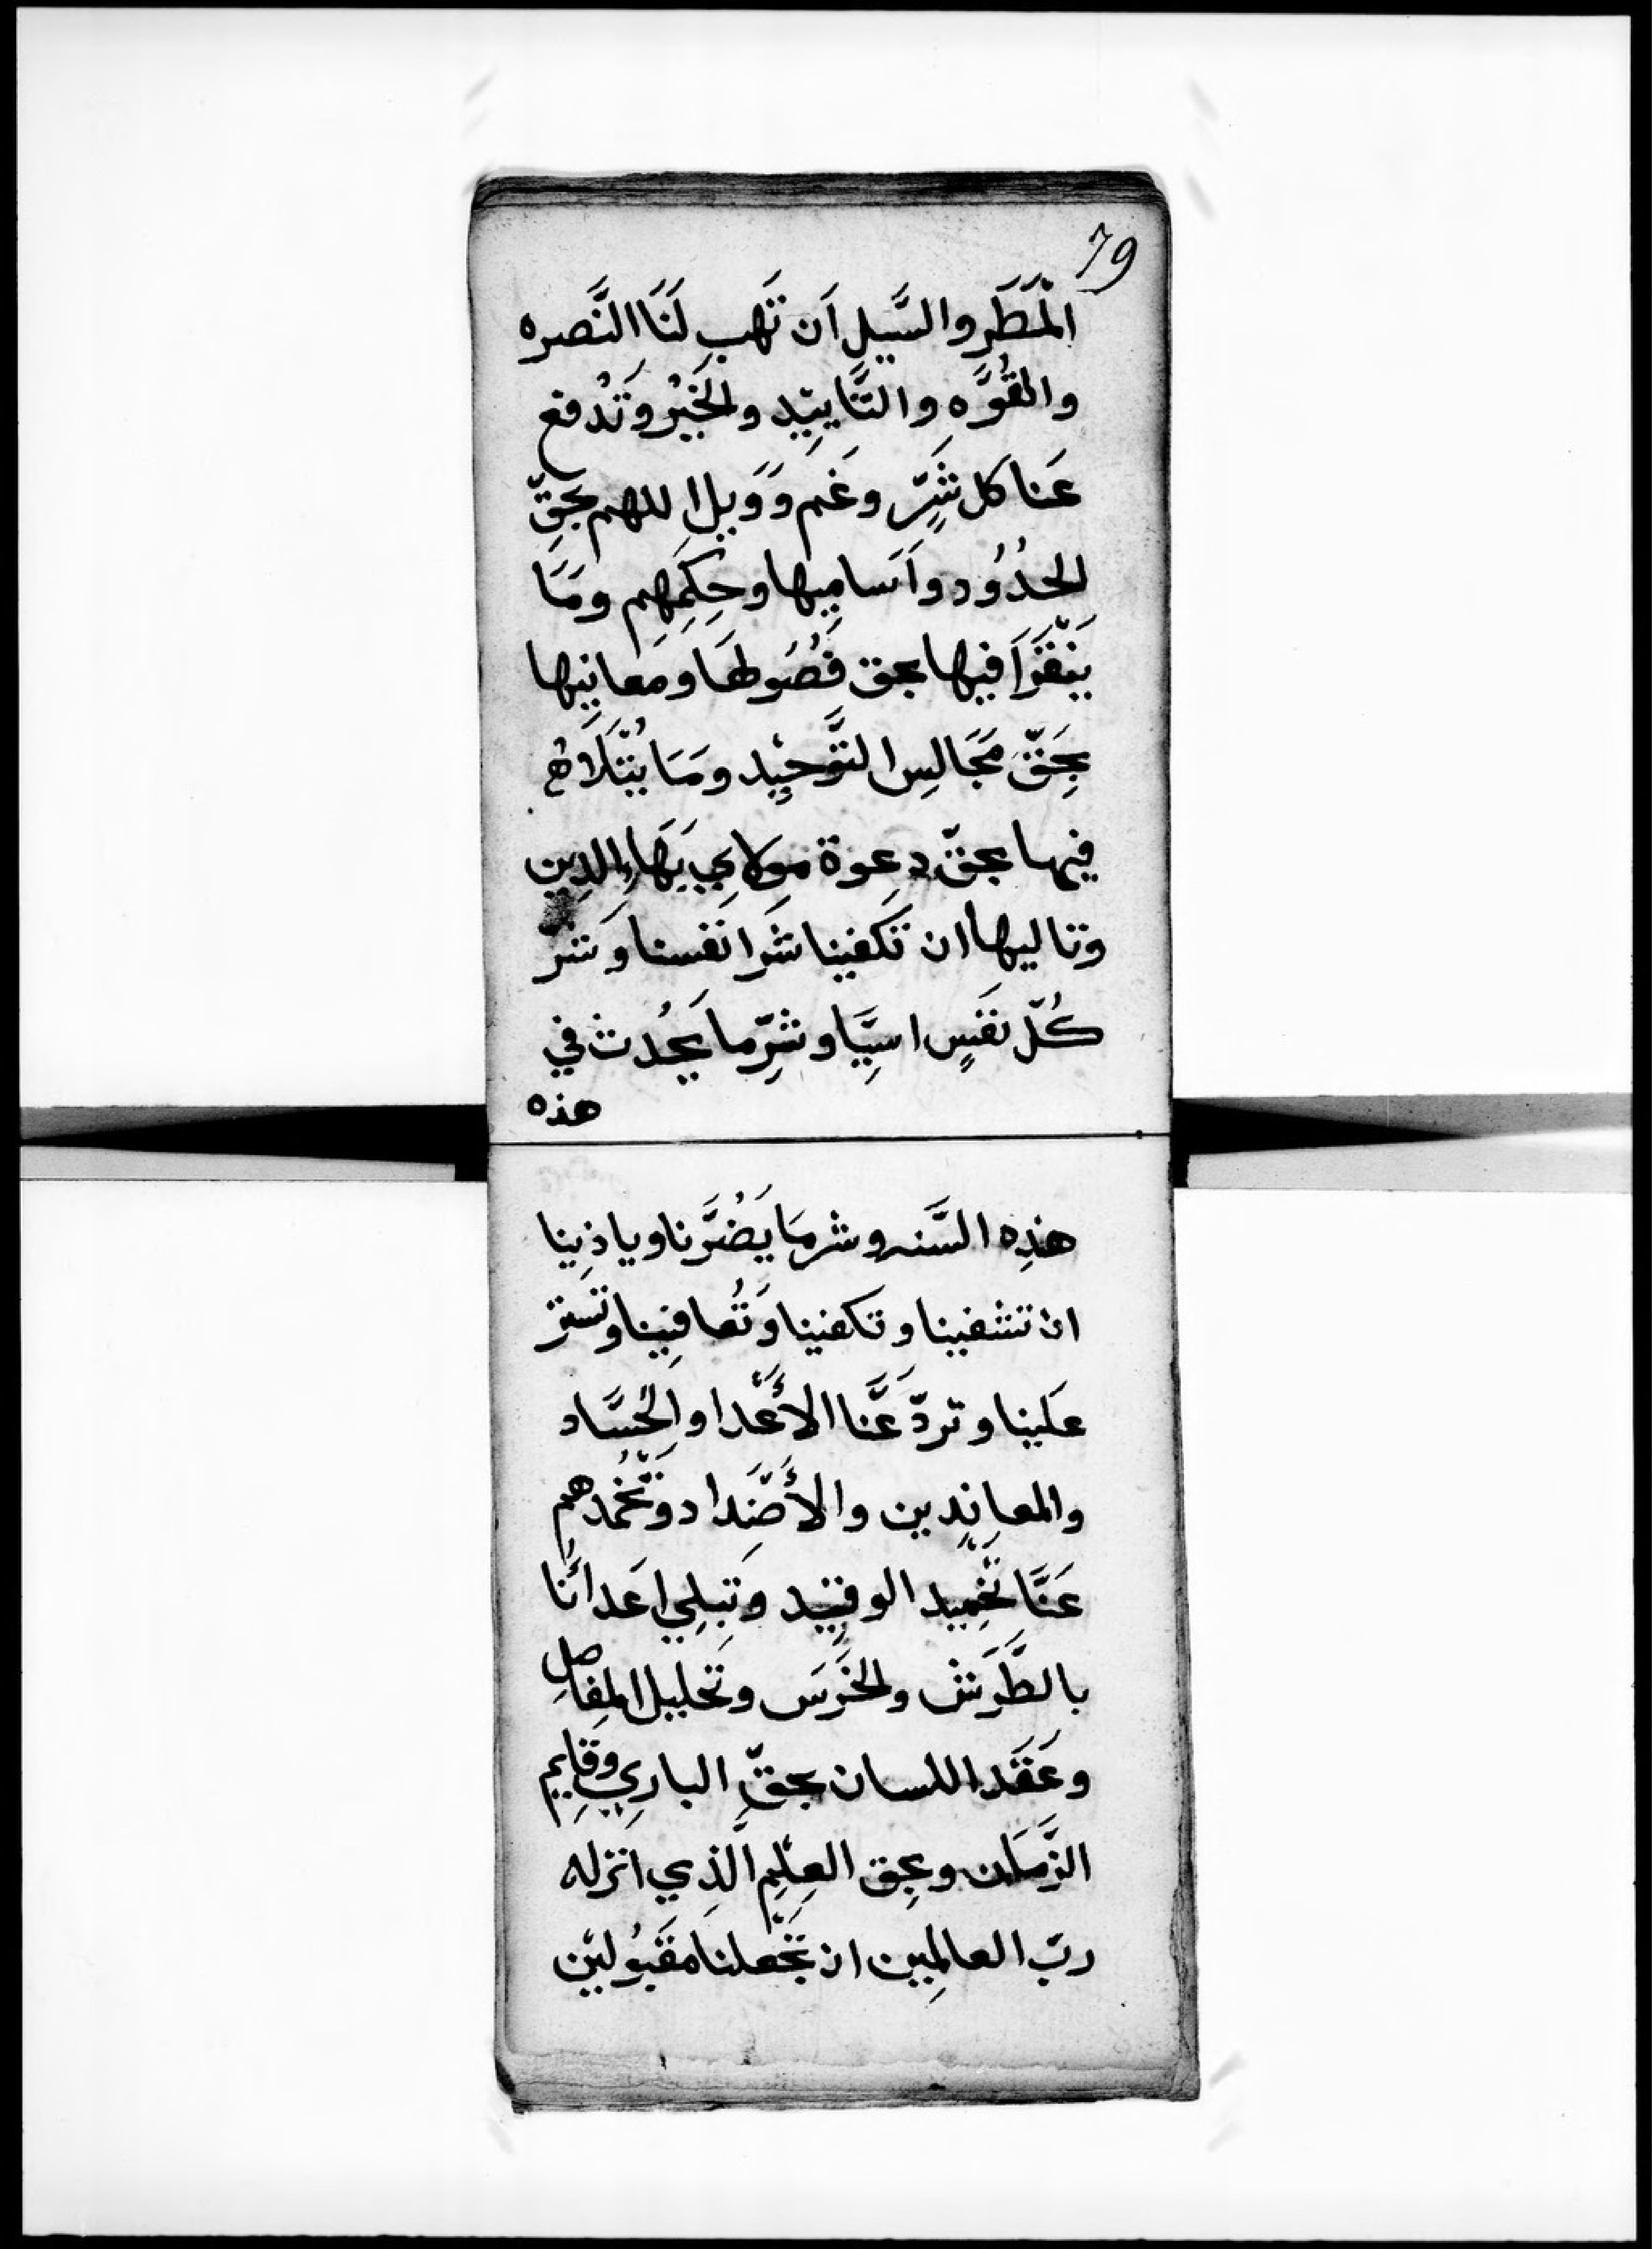 79
المْطَرِ والسَّيلِ اَن تَهَب لَنَا النَّصره
والقُوَّهِ والتَّاييّدِ والخَيْر وَتَدْفع
عَنا كل شَرٍّ وغَم وَوَيل اللهم بحَقِّ
الحُدُوُد واَسَامِيها وحِكَمِهِم ومَا
يَنْقَرَاَ فيها بحق فُصُولهَا ومَعانِيها
بحِقّ مَجَالِس التَّوحِيْد ومَا يُتْلَا
فيها بحقّ دعوة مولاي بَهَاءِ الدِين
وتاليها ان تَكفينا شَرَ انفسنا وشرّ
كُلّ نفَسٍ اسِيَّا وشرِّ ما يَحْدُث في
هذه
هذِه السَّنه وشر مَا يَضُرَّنا وياذِينا
ان تشفينا وتكفنيا وَتُعافِينا وتستر
عَلينا وتردّ عَنَّا الأَعْدا والحُسَّاد
والمعانِدين والأَضْدَاد وتَخْمُدهم
عَنَّا تَخْمِيد الوقِيْد وَتبلِي اعَدائنا
بالطَّرَش والخَرَس وتَحليل المفاصِل
وعَقْد اللسان بحقِّ البارِي وقايِم
الزَّمَان وبحِق العِلْمِ الَّذِي انزله
ربّ العالمِين ان تجْعلنا مَقبُوليْن